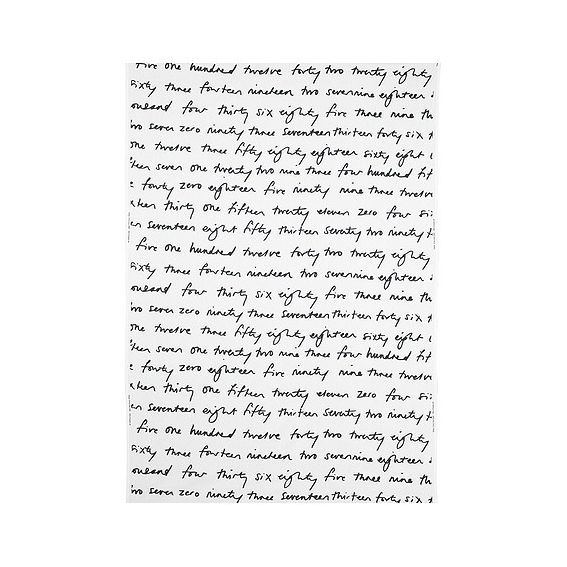 five one hundred twelve forty two twenty eighty
sixty three fourteen nineteen two seven nine eighteen
ousand four thirty six eighty five three nine th
wo seven zero ninety three seventeen thirteen forty six t
one twelve three fifty eighty eighteen sixty eight
teen seven one twenty two nine three four hundred fif
e fourty zero eighteen five ninety nine three twelve
thirty one fifteen twenty eleven zero four si
en seventeen eight fifty thirteen seventy two ninety t
five one hundred twelve forty two twenty eighty
sixty three fourteen nineteen two seven nine eighteen
ousand four thirty six eighty five three nine th
wo seven zero ninety three seventeen thirteen forty six t
one twelve three fifty eighty eighteen sixty eight
teen seven one twenty two nine three four hundred fif
e fourty zero eighteen five ninety nine three twelve
thirty one fifteen twenty eleven zero four si
en seventeen eight fifty thirteen seventy two ninety t
five one hundred twelve forty two twenty eighty
sixty three fourteen nineteen two seven nine eighteen
ousand four thirty six eighty five three nine th
wo seven zero ninety three seventeen thirteen forty six t